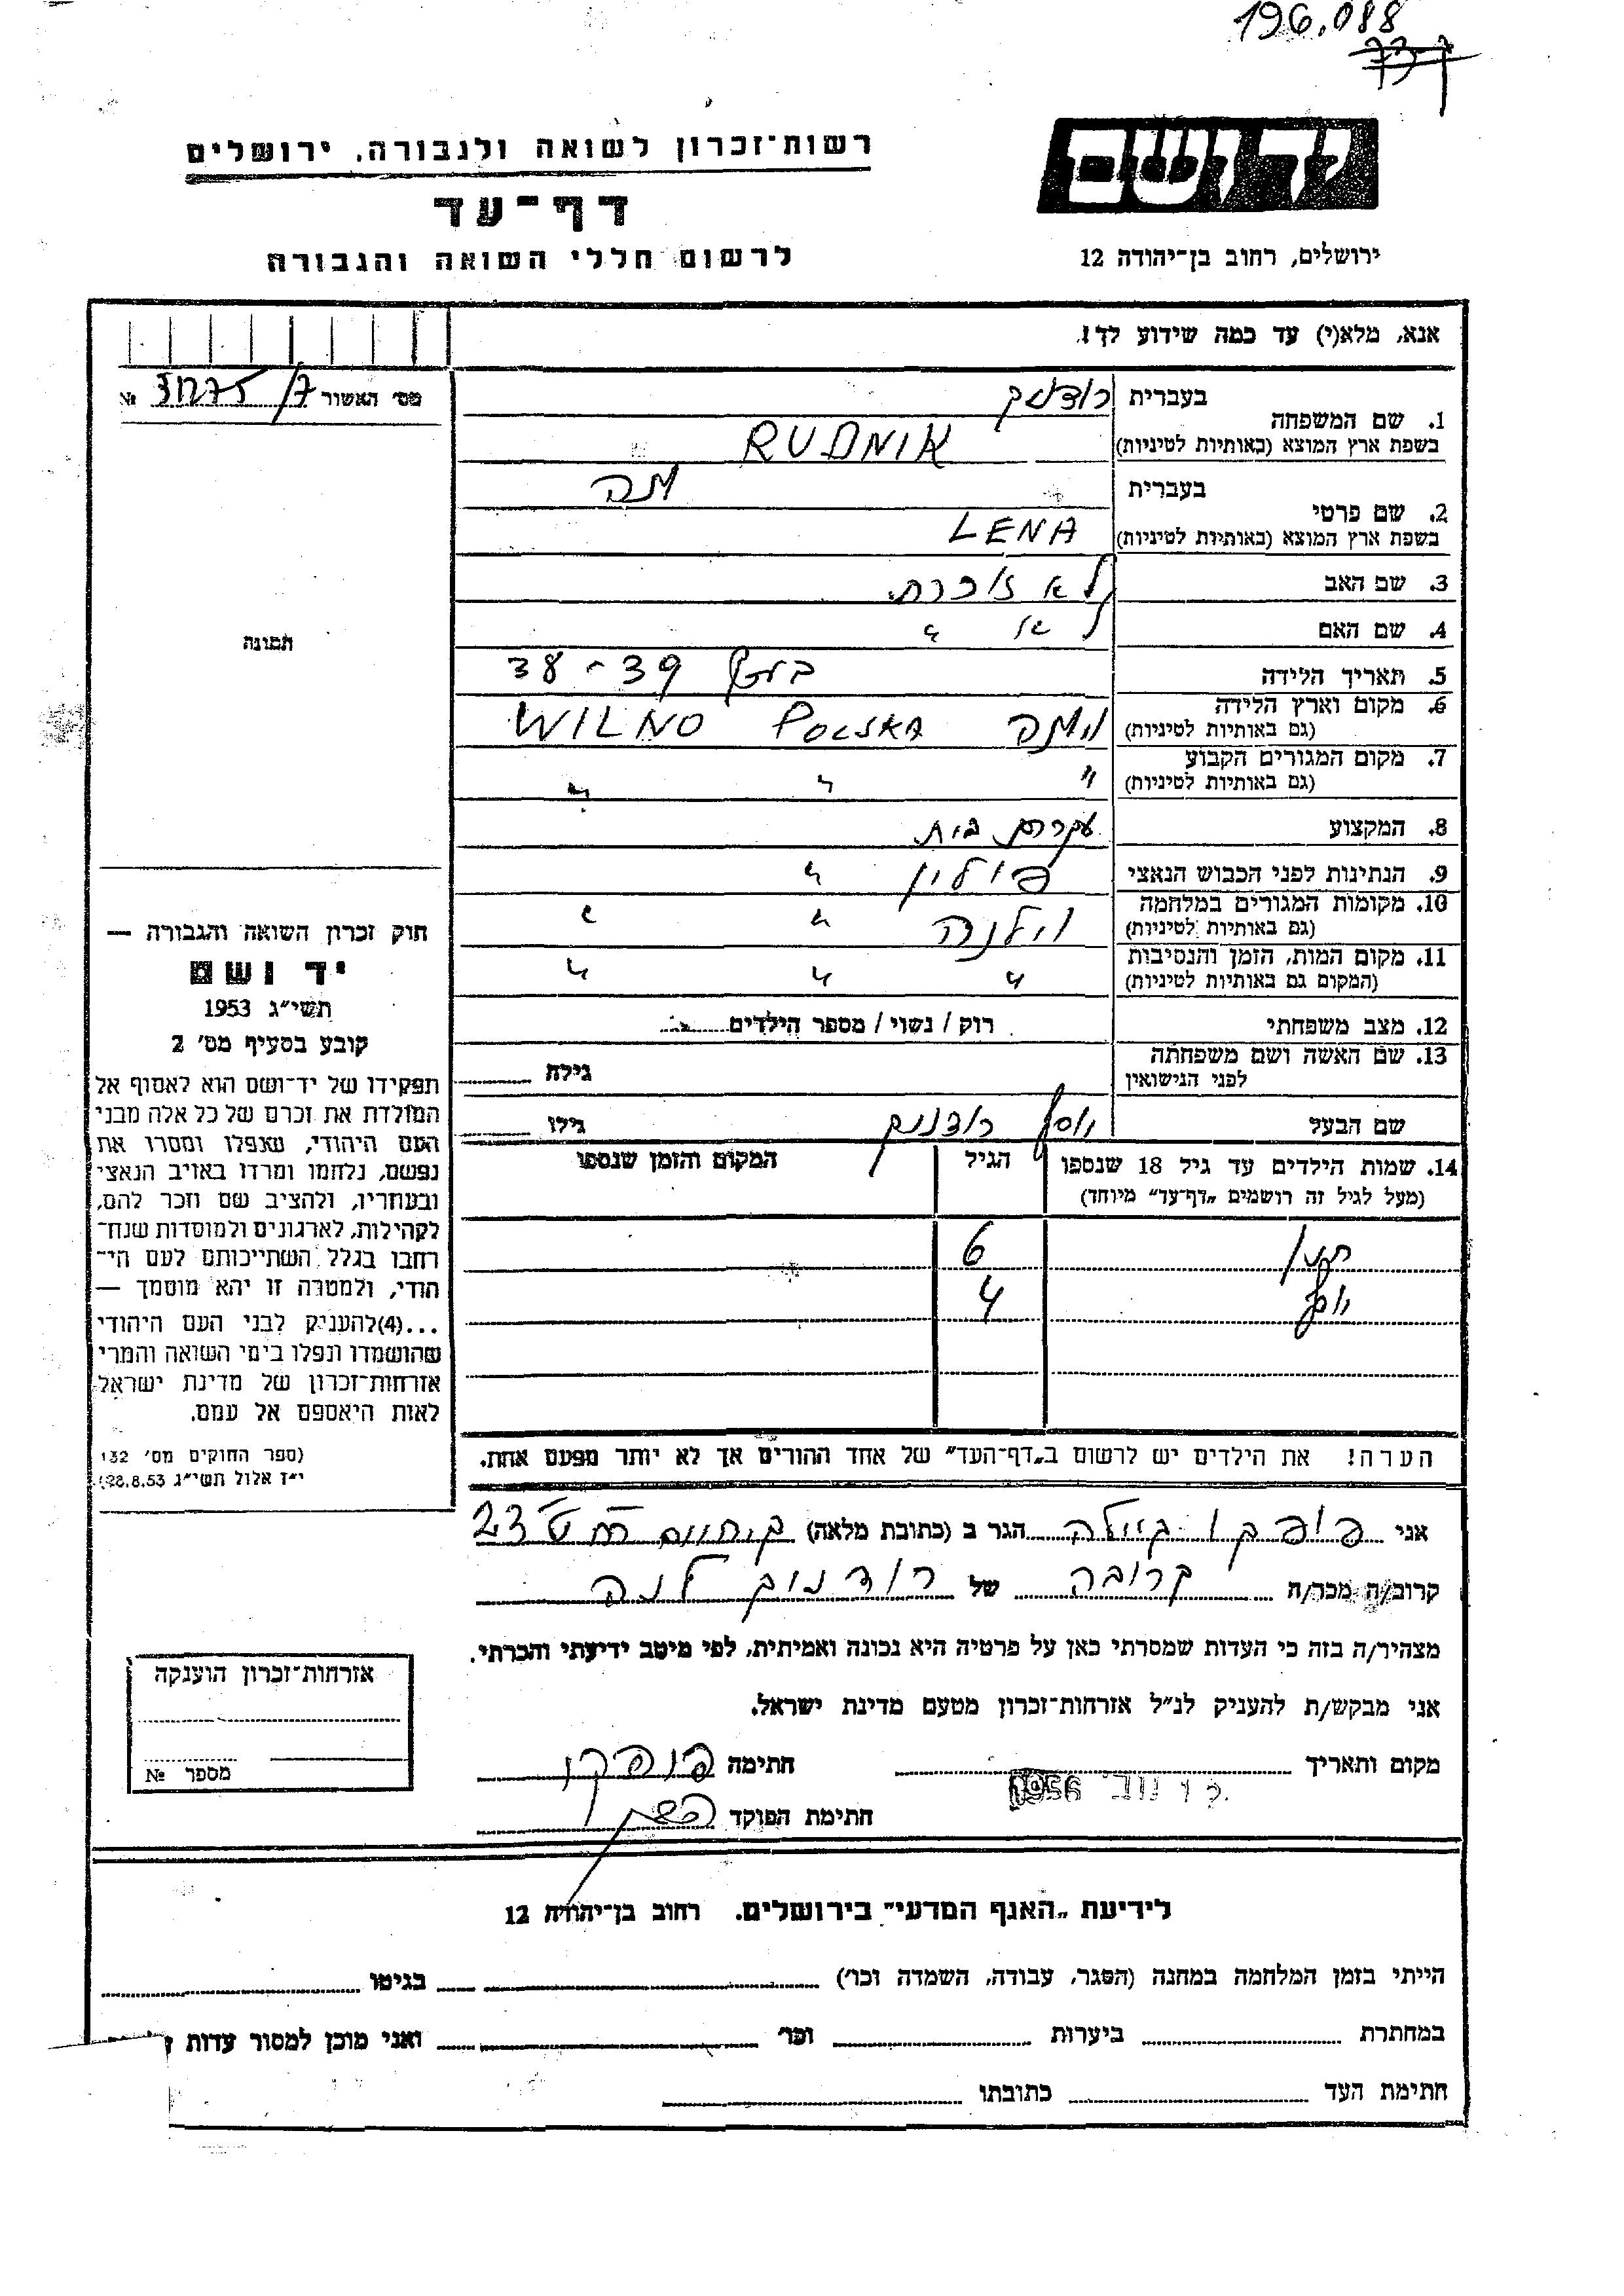 196.088
יד ושם
רשות־זכרון לשואה ולגבורה, ירושלים
דף־עד
לרשום חללי השואה והגבורה
ירושלים, רחוב בן־יהודה 12
אנא, מלא(י) עד כמה שידוע לך!
מס׳ האשור №
1. שם המשפחה בעברית רודניק
בשפת ארץ המוצא (באותיות לטיניות) RUDNIK
2. שם פרטי בעברית לנה
בשפת ארץ המוצא (באותיות לטיניות) LENA
3. שם האב לא זוכרת
4. שם האם לא "
5. תאריך הלידה בערך 39-38
6. מקום וארץ הלידה (גם באותיות לטיניות) וילנה WILNO POLSKA
7. מקום המגורים הקבוע (גם באותיות לטיניות) " " "
8. המקצוע עקרת בית
9. הנתינות לפני הכבוש הנאצי פולין "
10. מקומות המגורים במלחמה (גם באותיות לטיניות) וילנה " "
11. מקום המות, הזמן והנסיבות (המקום גם באותיות לטיניות) " " "
12. מצב משפחתי רוק / נשוי / מספר הילדים
13. שם האשה ושם משפחתה לפני הנישואין גילה
שם הבעל יוסף רודניק גילו
14. שמות הילדים עד גיל 18 שנספו הגיל המקום והזמן שנספו
(מעל לגיל זה רושמים „דף־עד״ מיוחד)
6
יוסף 4
הערה! את הילדים יש לרשום ב„דף־העד״ של אחד ההורים אך לא יותר מפעם אחת.
תמונה
חוק זכרון השואה והגבורה —
יד ושם
תשי״ג 1953
קובע בסעיף מס׳ 2
תפקידו של יד־ושם הוא לאסוף אל
המולדת את זכרם של כל אלה מבני
העם היהודי, שנפלו ומסרו את
נפשם, נלחמו ומרדו באויב הנאצי
ובעוזריו, ולהציב שם וזכר להם,
לקהילות, לארגונים ולמוסדות שנח־
רבו בגלל השתייכותם לעם הי־
הודי, ולמטרה זו יהא מוסמך —
...(4) להעניק לבני העם היהודי
שהושמדו ונפלו בימי השואה והמרי
אזרחות־זכרון של מדינת ישראל
לאות היאספם אל עמם.
(ספר החוקים מס׳ 132
י״ז אלול תשי״ג 28.8.53)
אני הגר ב (כתובת מלאה) 23
קרוב/ה מכר/ה קרובה של רודניק לנה
מצהיר/ה בזה כי העדות שמסרתי כאן על פרטיה היא נכונה ואמיתית, לפי מיטב ידיעתי והכרתי.
אני מבקש/ת להעניק לנ״ל אזרחות־זכרון מטעם מדינת ישראל.
מקום ותאריך נוב׳ 1956 חתימה
חתימת הפוקד
אזרחות־זכרון הוענקה
מספר №
לידיעת „האגף המדעי״ בירושלים. רחוב בן־יהודה 12
הייתי בזמן המלחמה במחנה (הסגר, עבודה, השמדה וכו׳) בגיטו
במחתרת ביערות וכו׳ ואני מוכן למסור עדות
חתימת העד כתובתו